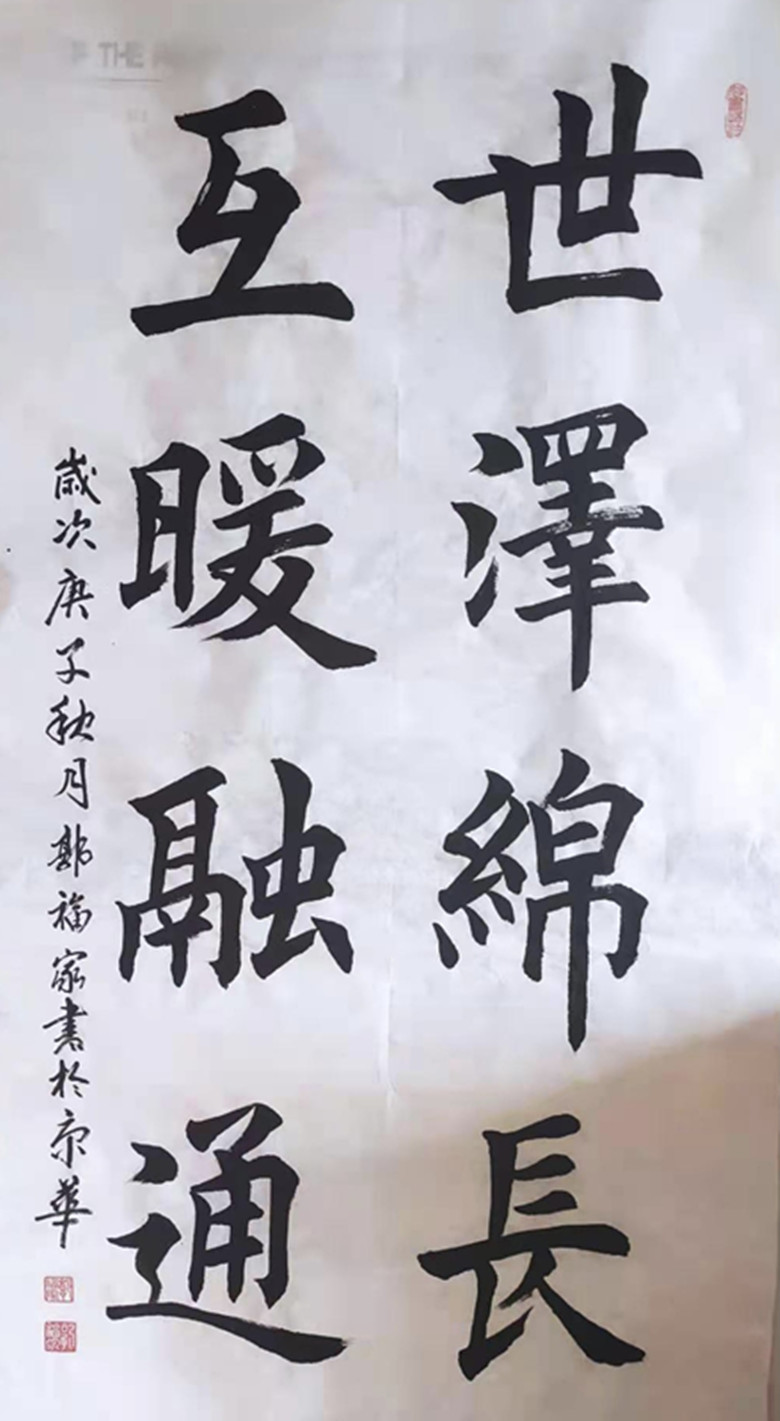 世澤綿長
互暖融通
歲次庚子秋月鄭福家書於京華
THE